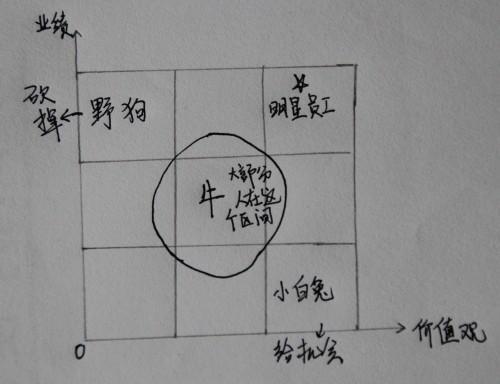 业绩
砍
掉
野狗
明星员工
牛
大部分
人在这
个区间
小白兔
给机会
价值观
0